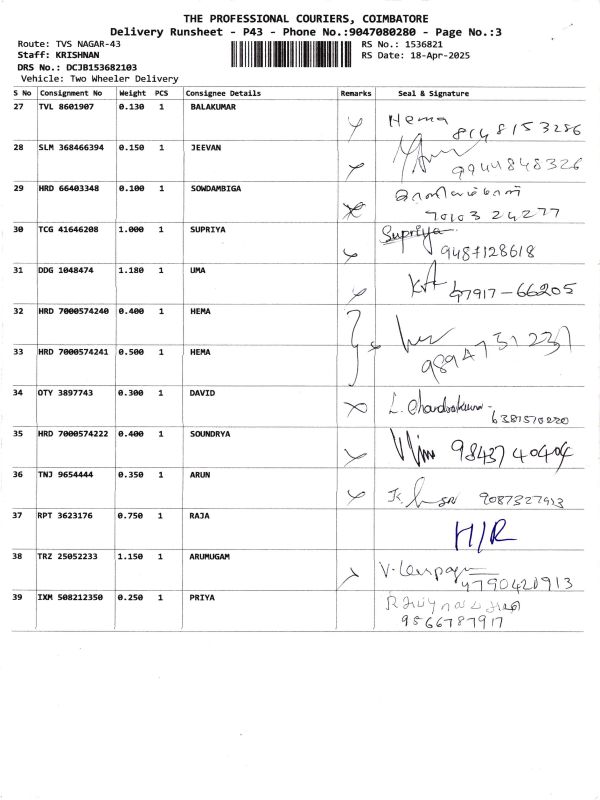 THE PROFESSIONAL COURIERS, COIMBATORE
Delivery Runsheet - P43 - Phone No.:9047080280 - Page No.:3
Route: TVS NAGAR-43 RS No.: 1536821
Staff: KRISHNAN RS Date: 18-Apr-2025
DRS No.: DCJB153682103
Vehicle: Two Wheeler Delivery
S No Consignment No Weight PCS Consignee Details Remarks Seal & Signature
27 TVL 8601907 0.130 1 BALAKUMAR Hema
8148153286
28 SLM 368466394 0.150 1 JEEVAN
9944848326
29 HRD 66403348 0.100 1 SOWDAMBIGA
70103 24277
30 TCG 41646208 1.000 1 SUPRIYA Supriya
9487128618
31 DDG 1048474 1.180 1 UMA
97917-66205
32 HRD 7000574240 0.400 1 HEMA
33 HRD 7000574241 0.500 1 HEMA
9894731237
34 OTY 3897743 0.300 1 DAVID L. Chandrakumar
6381570220
35 HRD 7000574222 0.400 1 SOUNDRYA 98437 40404
36 TNJ 9654444 0.350 1 ARUN 9087327913
37 RPT 3623176 0.750 1 RAJA H/R
38 TRZ 25052233 1.150 1 ARUMUGAM
9790420913
39 IXM 508212350 0.250 1 PRIYA
9566787917